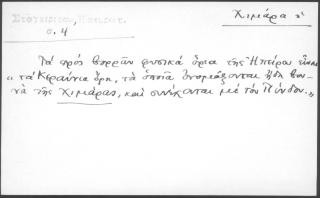 Χιμάρα
σ. 4
Τὰ πρὸς βορρᾶν φυσικὰ ὅρια τῆς Ἠπείρου εἶναι
"τὰ Κεραύνια ὄρη, τὰ ὁποῖα ὀνομάζονται ἤδη βου-
νὰ τῆς Χιμάρας, καὶ συνέχονται μὲ τὸν Πίνδον."